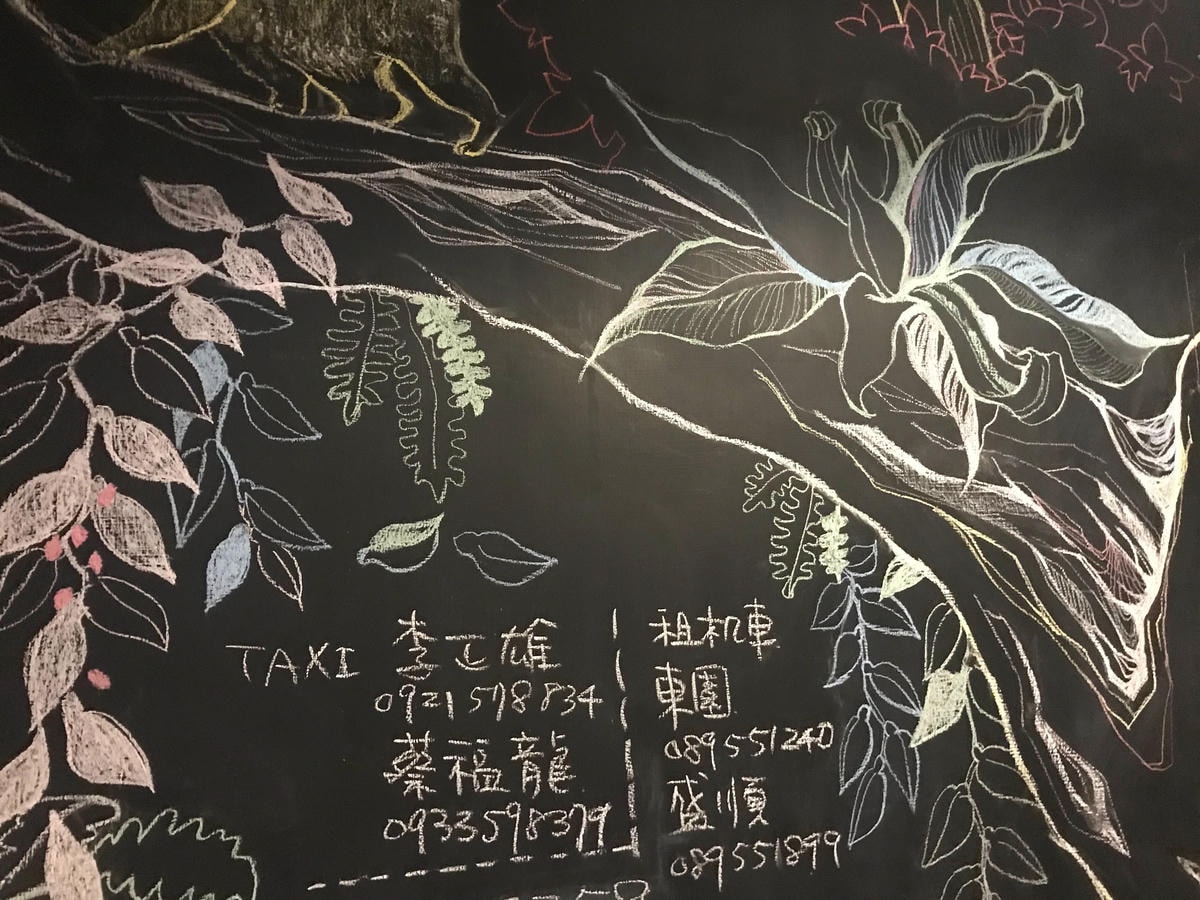 TAXI 李正雄
0921578834
蔡福龍
0933598379
租机車
東園
089551240
盛順
089551899